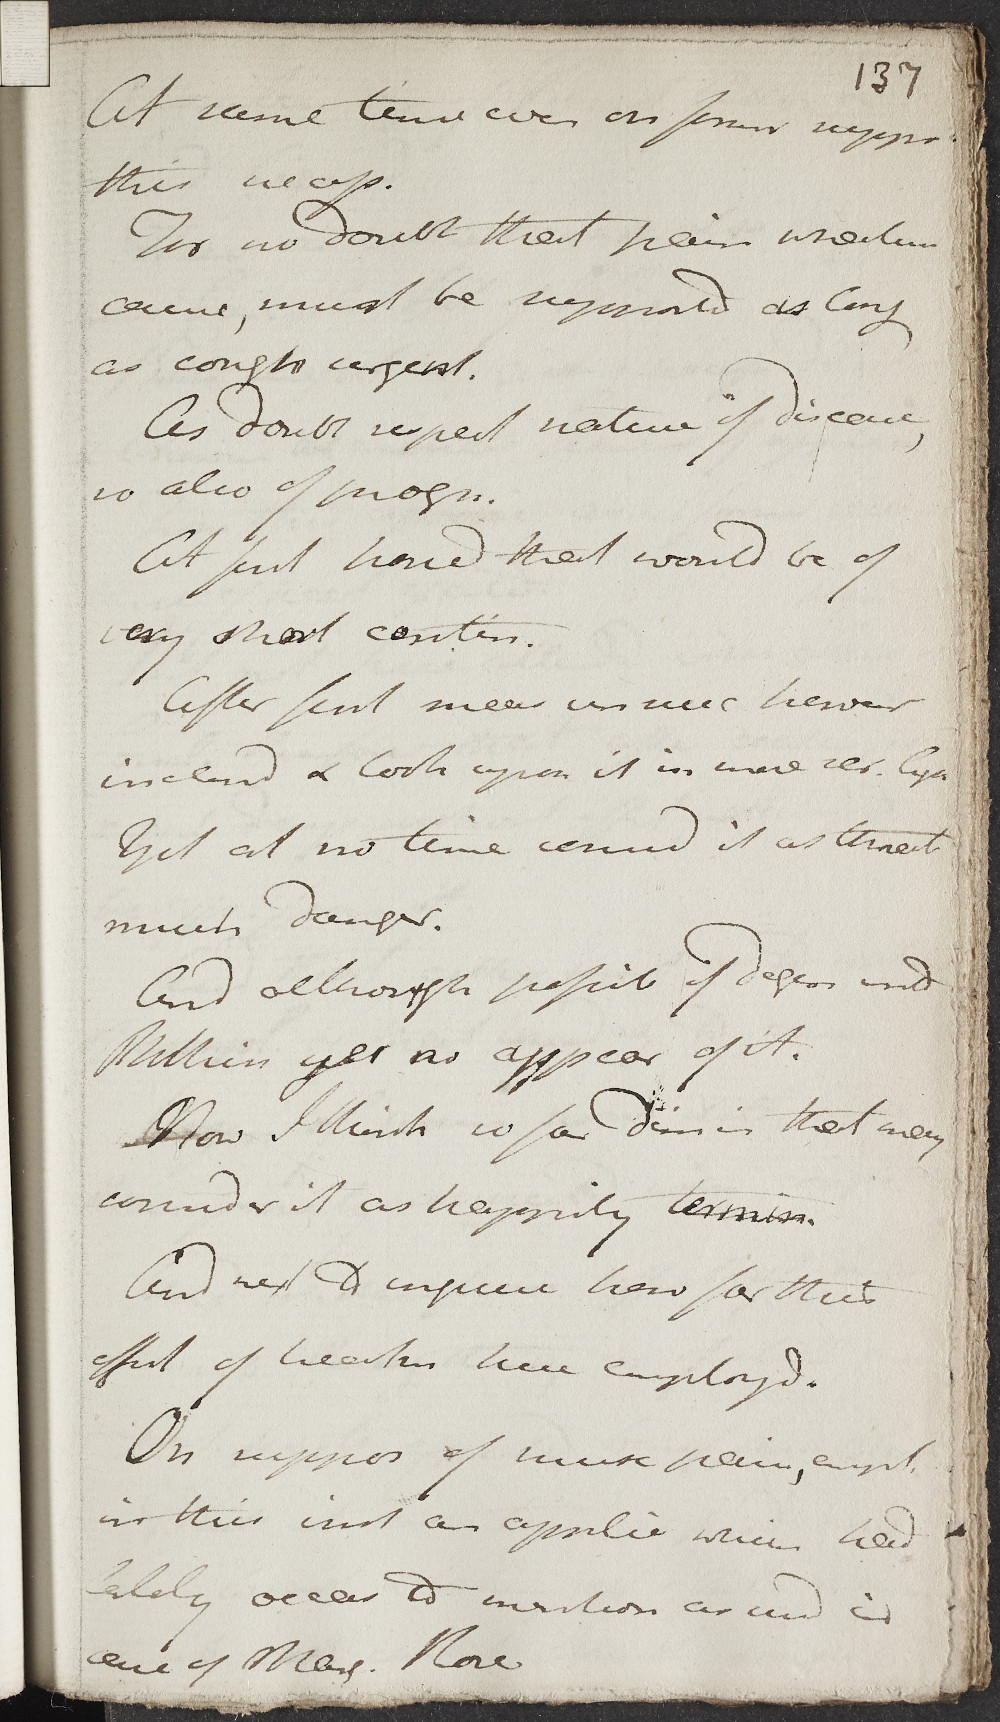 137
At same time even on former suppos
this necess.
For no doubt that pain whatever
cause, must be supported as long
as cough urgent.
As doubt respect nature of disease,
so also of progn.
At first hoped that would be of
very short contin.
After first meas us
inclined & look upon it in more ser. light
Yet at no time consid it as threat
much danger.
And although possib of degen into
Phthisis yet no appear of it.
Now I think so far dimin that may
consider it as happily termin.
And next to inquire how far this
effect of here employd.
On suppos of musc pain, empl.
in this inst an applic which had
lately occas to mention as used in
case of Marg. Rose